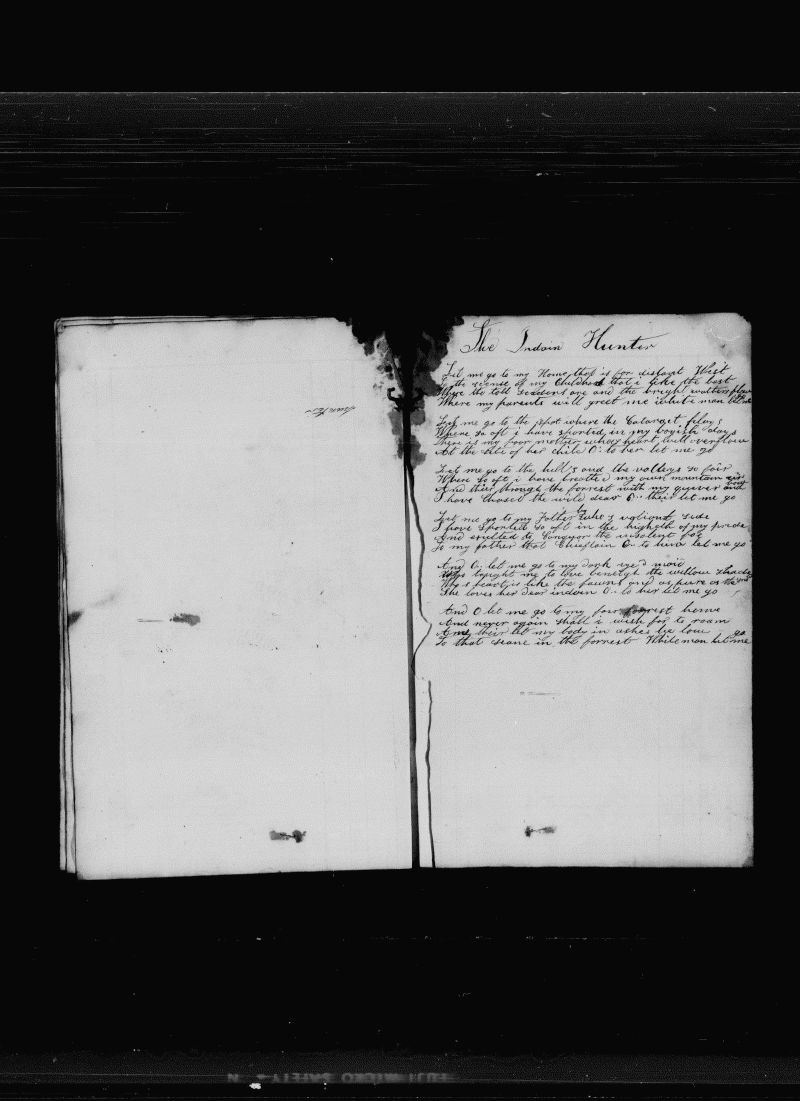 The Indain Hunter
Let me go to my Home that is far distant West
to the scense of my Childhood that i like the best
Where the tall are and the bright watters flow
Where my parents will greet me white man let me
Let me go to the spot where the Cataract plays
Where so oft i have sported in my boyish days
there is my poor mother whose heart will overflow
At the site of her child O.. to her let me go
Let me go to the hill,s and the valleys so fair
Where so oft i have breathed my own mountain air
And their through the forrest with my quiver and
I have Chased the wild dear O.. their let me go
Let me go to my Father by side
I have sported so oft in the highth of my pride
And exulted to Conquor the insolent foe
To my father that Chieftain O.. to him let me go
And O.. let me go to my dark eye'd
Who taught me to love beneath the willow shade
Who,s heart is like the fawns and as pure as the
She loves her dear indain O.. to her let me go
And O let me go to my forrest home
And never again shall i wish for to roam
And their let my body in ashes lie low
To that scane in the forrest White man let me go
Hunter
FUJI MICRO SAFETY